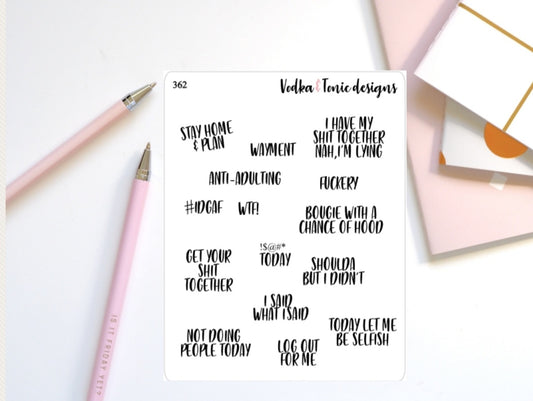 362
Vodka & Tonic designs
STAY HOME
& PLAN
WAYMENT
I HAVE MY
SHIT TOGETHER
NAH, I'M LYING
ANTI-ADULTING
FUCKERY
#IDGAF
WTF!
BOUGIE WITH A
CHANCE OF HOOD
GET YOUR
SHIT
TOGETHER
!$@#*
TODAY
SHOULDA
BUT I DIDN'T
I SAID
WHAT I SAID
NOT DOING
PEOPLE TODAY
LOG OUT
FOR ME
TODAY LET ME
BE SELFISH
IS IT FRIDAY YET?